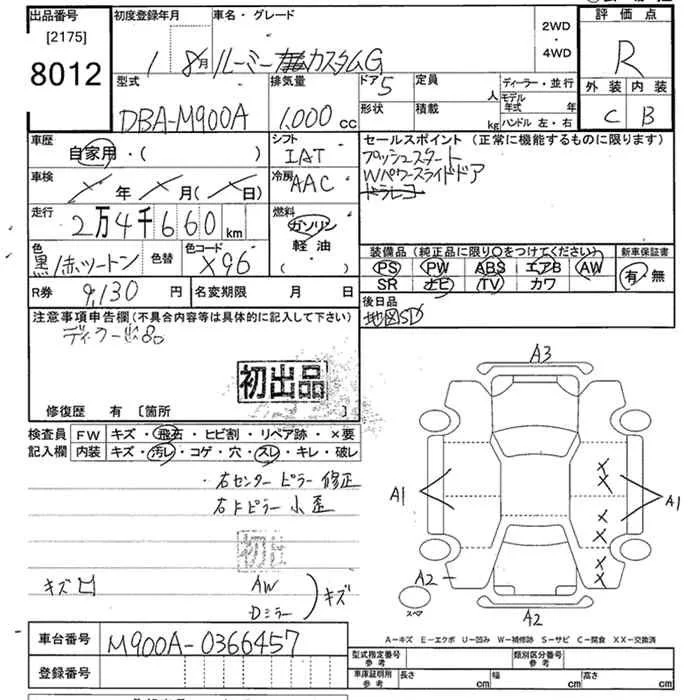 出品番号
[2175]
8012
初度登録年月
1 8月
車名・グレード
ルーミー カスタムG
2WD
・
4WD
評価点
R
外装 内装
C B
型式
DBA-M900A
排気量
1,000 cc
ドア 5
形状
定員
人
積載
kg
ディーラー・並行
モデル年式 年
ハンドル 左・右
車歴
自家用・( )
シフト
IAT
車検
× 年 × 月( × 日)
冷房
AAC
走行
2万4千660 km
燃料
ガソリン
軽油
( ・ )
色
黒/赤ツートン
色替
色コード
X96
R券 9,130 円
名変期限 月 日
セールスポイント(正常に機能するものに限ります)
プッシュスタート
Wパワースライドドア
ドラレコ
装備品(純正品に限り○をつけてください)
PS PW ABS エアB AW
SR ナビ TV カワ
新車保証書
有・無
後日品
地図SD
注意事項申告欄(不具合内容等は具体的に記入して下さい)
初出品
修復歴 有 [箇所 ]
検査員
記入欄
FW キズ・飛石・ヒビ割・リペア跡・×要
内装 キズ・汚レ・コゲ・穴・スレ・キレ・破レ
・右センターピラー修正
右Fピラー小歪
初出
キズ凹
AW
Dミラー
キズ
A3
A1
A1
A2
A2
スペア
A-キズ E-エクボ U-凹み W-補修跡 S-サビ C-腐食 XX-交換済
車台番号 M900A-0366457
登録番号
型式指定番号
参考
類別区分番号
参考
車庫証明用
参考
長さ cm 幅 cm 高さ cm